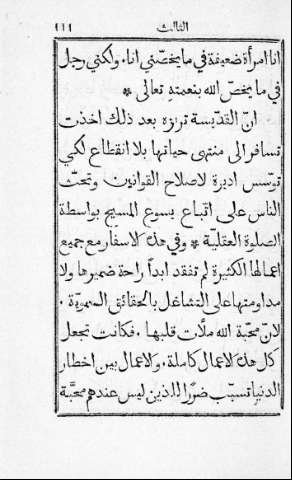 الثالث ١١١
انا امرأة ضعيفة في ما يخصّني انا. ولكني رجل
في ما يخصّ الله بنعمتهِ تعالى *
انّ القدّيسة ترازه بعد ذلك اخذت
تسافر الى منتهى حياتها بلا انقطاع لكي
توسّس اديرة لاصلاح القوانين وتحثّ
الناس على اتباع يسوع المسيح بواسطة
الصلوة العقليّة * وفي هذه الاسفار مع جميع
اعمالها الكثيرة لم تفقد ابداً راحة ضميرها ولا
مداومتها على التشاغل بالحقائق السمويّة.
لانّ محبّة الله ملأت قلبها. فكانت تجعل
كل هذه الاعمال كاملة. والاعمال بين اخطار
الدنيا تسبّب ضررًا للذين ليس عندهم محبّة